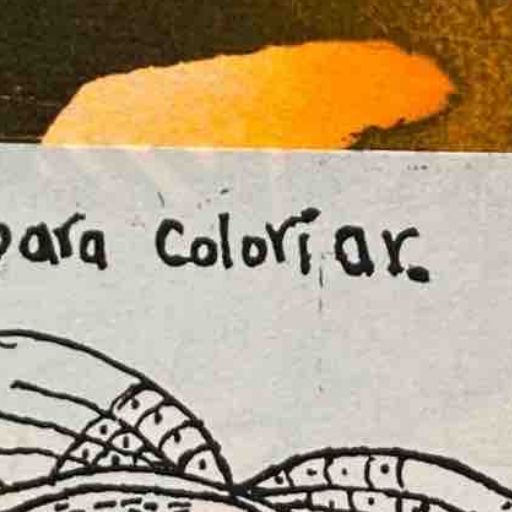 para coloriar.